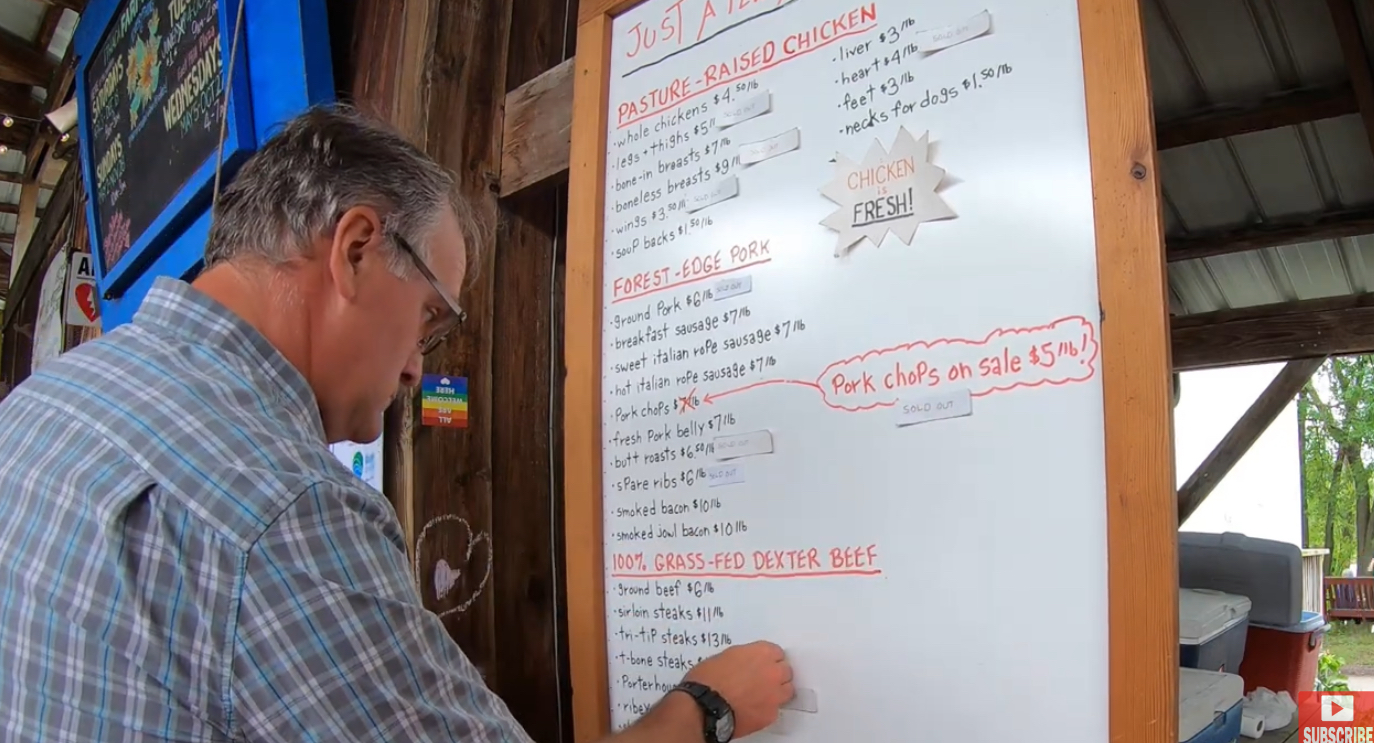 JUST A
PASTURE-RAISED CHICKEN
·whole chickens $4.50/lb
·legs + thighs $5/lb SOLD OUT
·bone-in breasts $7/lb
·boneless breasts $9/lb SOLD OUT
·wings $3.50/lb SOLD OUT
·soup backs $1.50/lb
·liver $3/lb
·heart $4/lb SOLD OUT
·feet $3/lb
·necks for dogs $1.50/lb
CHICKEN
is
FRESH!
FOREST-EDGE PORK
·ground Pork $6/lb SOLD OUT
·breakfast sausage $7/lb
·sweet italian rope sausage $7/lb
·hot italian rope sausage $7/lb
·Pork chops $7/lb
Pork chops on sale $5/lb!
SOLD OUT
·fresh Pork belly $7/lb
·butt roasts $6.50/lb SOLD OUT
·spare ribs $6/lb SOLD OUT
·smoked bacon $10/lb
·smoked jowl bacon $10/lb
100% GRASS-FED DEXTER BEEF
·ground beef $6/lb
·sirloin steaks $11/lb
·tri-tip steaks $13/lb
·t-bone steaks
·Porterhou
·ribe
SATURDAYS
SUNDAYS
WEDNESDAYS
ALL
ARE
WELCOME
HERE
SUBSCRIBE